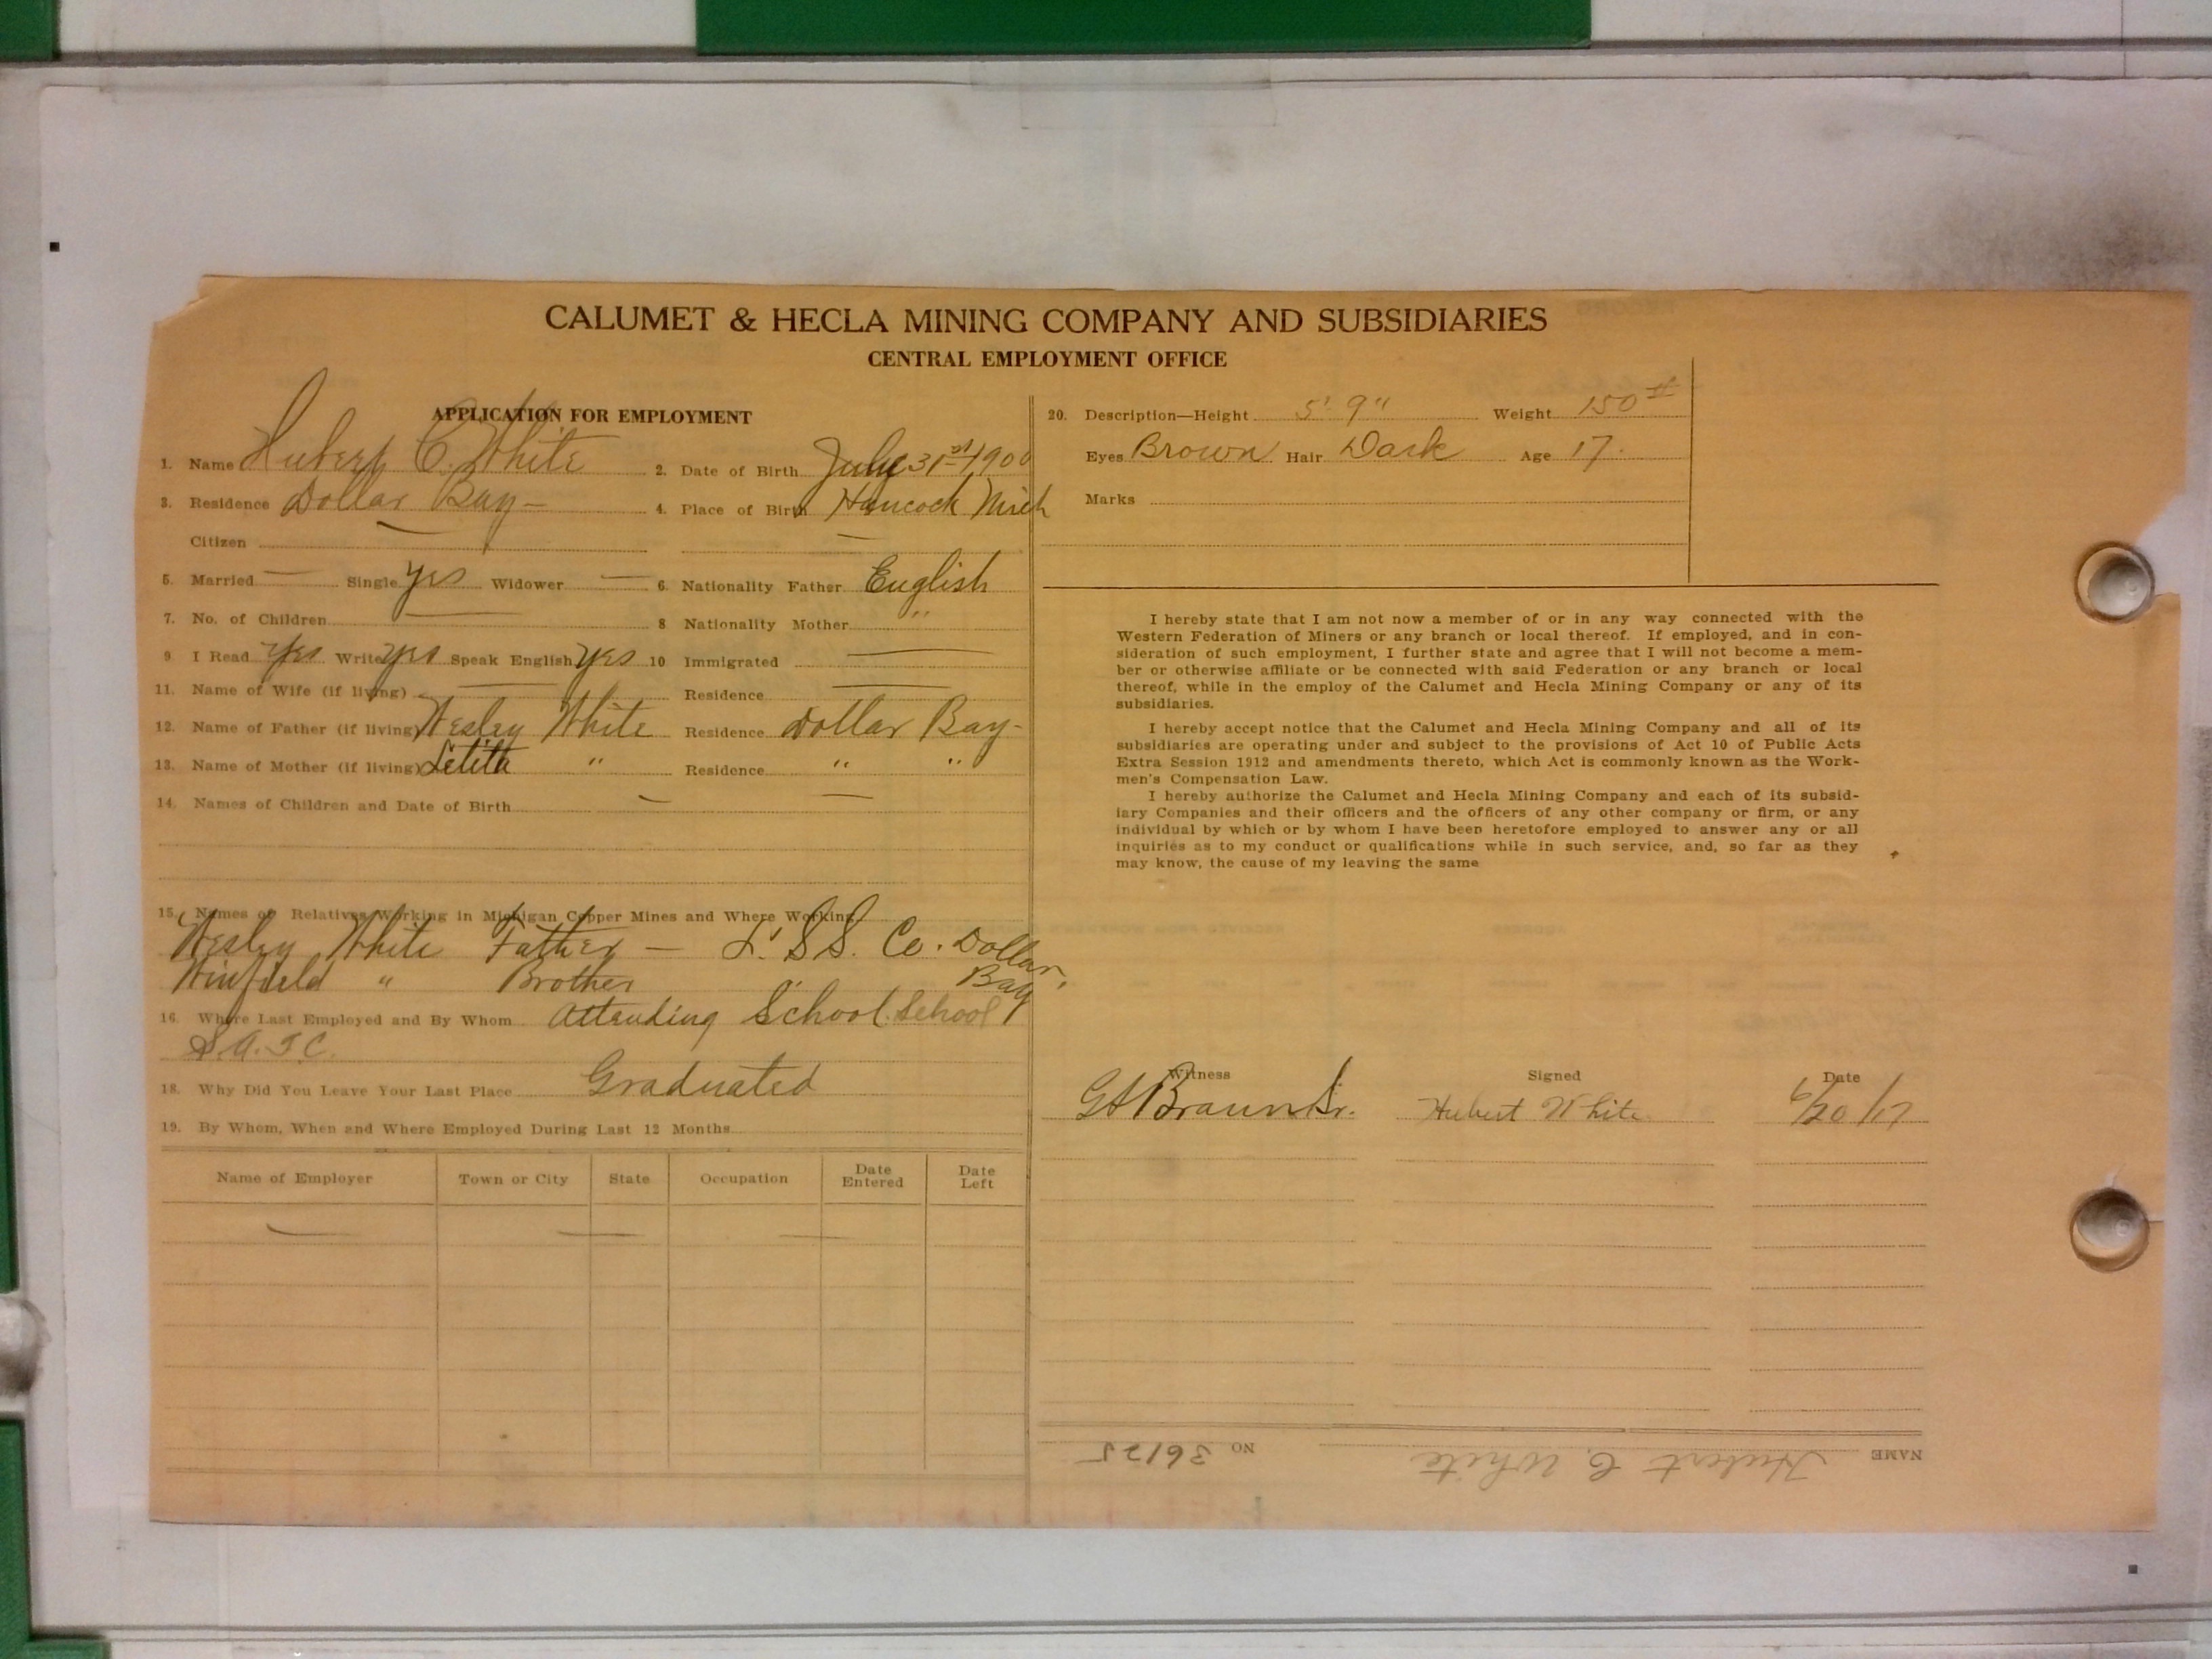 CALUMET & HECLA MINING COMPANY AND SUBSIDIARIES
CENTRAL EMPLOYMENT OFFICE
APPLICATION FOR EMPLOYMENT
1. Name Hubert C. White 2. Date of Birth July 31st 1900
3. Residence Dollar Bay - 4. Place of Birth Hancock Mich
Citizen —
5. Married — Single yes Widower — 6. Nationality Father English
7. No. of Children — 8 Nationality Mother "
9. I Read yes Write yes Speak English yes 10 Immigrated —
11. Name of Wife (if living) — Residence —
12. Name of Father (if living) Wesley White Residence Dollar Bay -
13. Name of Mother (if living) Letitia " Residence " "
14. Names of Children and Date of Birth — —
15. Names of Relatives Working in Michigan Copper Mines and Where Working
Wesley White Father — L. S. S. Co. Dollar
Winfield " Brother Bay
16. Where Last Employed and By Whom Attending School. School
S.A.T.C.
18. Why Did You Leave Your Last Place Graduated
19. By Whom, When and Where Employed During Last 12 Months
Name of Employer Town or City State Occupation Date Entered Date Left
— — —
20. Description—Height 5' 9" Weight 150 #
Eyes Brown Hair Dark Age 17.
Marks
I hereby state that I am not now a member of or in any way connected with the
Western Federation of Miners or any branch or local thereof. If employed, and in con-
sideration of such employment, I further state and agree that I will not become a mem-
ber or otherwise affiliate or be connected with said Federation or any branch or local
thereof, while in the employ of the Calumet and Hecla Mining Company or any of its
subsidiaries.
I hereby accept notice that the Calumet and Hecla Mining Company and all of its
subsidiaries are operating under and subject to the provisions of Act 10 of Public Acts
Extra Session 1912 and amendments thereto, which Act is commonly known as the Work-
men's Compensation Law.
I hereby authorize the Calumet and Hecla Mining Company and each of its subsid-
iary Companies and their officers and the officers of any other company or firm, or any
individual by which or by whom I have been heretofore employed to answer any or all
inquiries as to my conduct or qualifications while in such service, and, so far as they
may know, the cause of my leaving the same
Witness Signed Date
G H Braun Sr. Hubert White 6/20/17
NAME Hubert C. White NO 36125